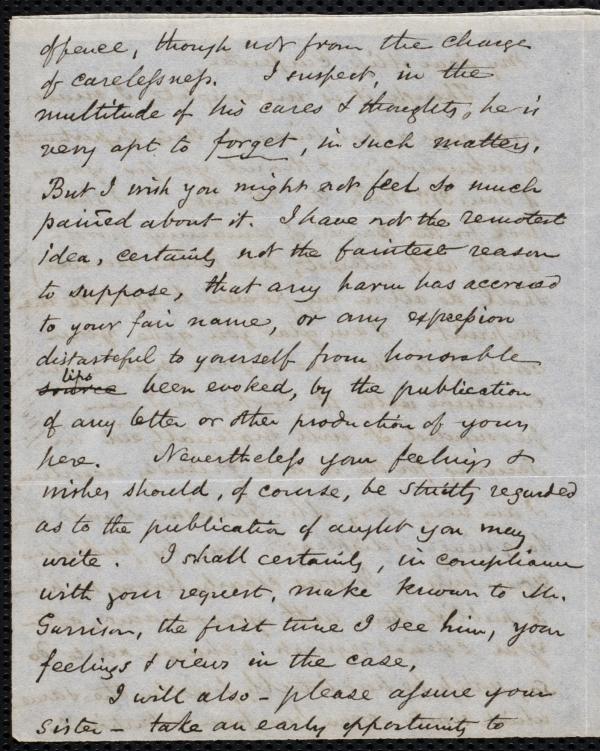 offence, though not from the charge
of carelessness. I suspect, in the
multitude of his cares & thoughts, he is
very apt to forget, in such matters.
But I wish you might not feel so much
pained about it. I have not the remotest
idea, certainly not the faintest reason
to suppose, that any harm has accrued
to your fair name, or any expression
distasteful to yourself from honorable
source lips been evoked, by the publication
of any letter or other production of yours
here. Nevertheless your feelings &
wishes should, of course, be strictly regarded
as to the publication of aught you may
write. I shall certainly, in compliance
with your request, make known to Mr.
Garrison, the first time I see him, your
feelings & views in the case.
I will also – please assure your
Sister – take an early opportunity to